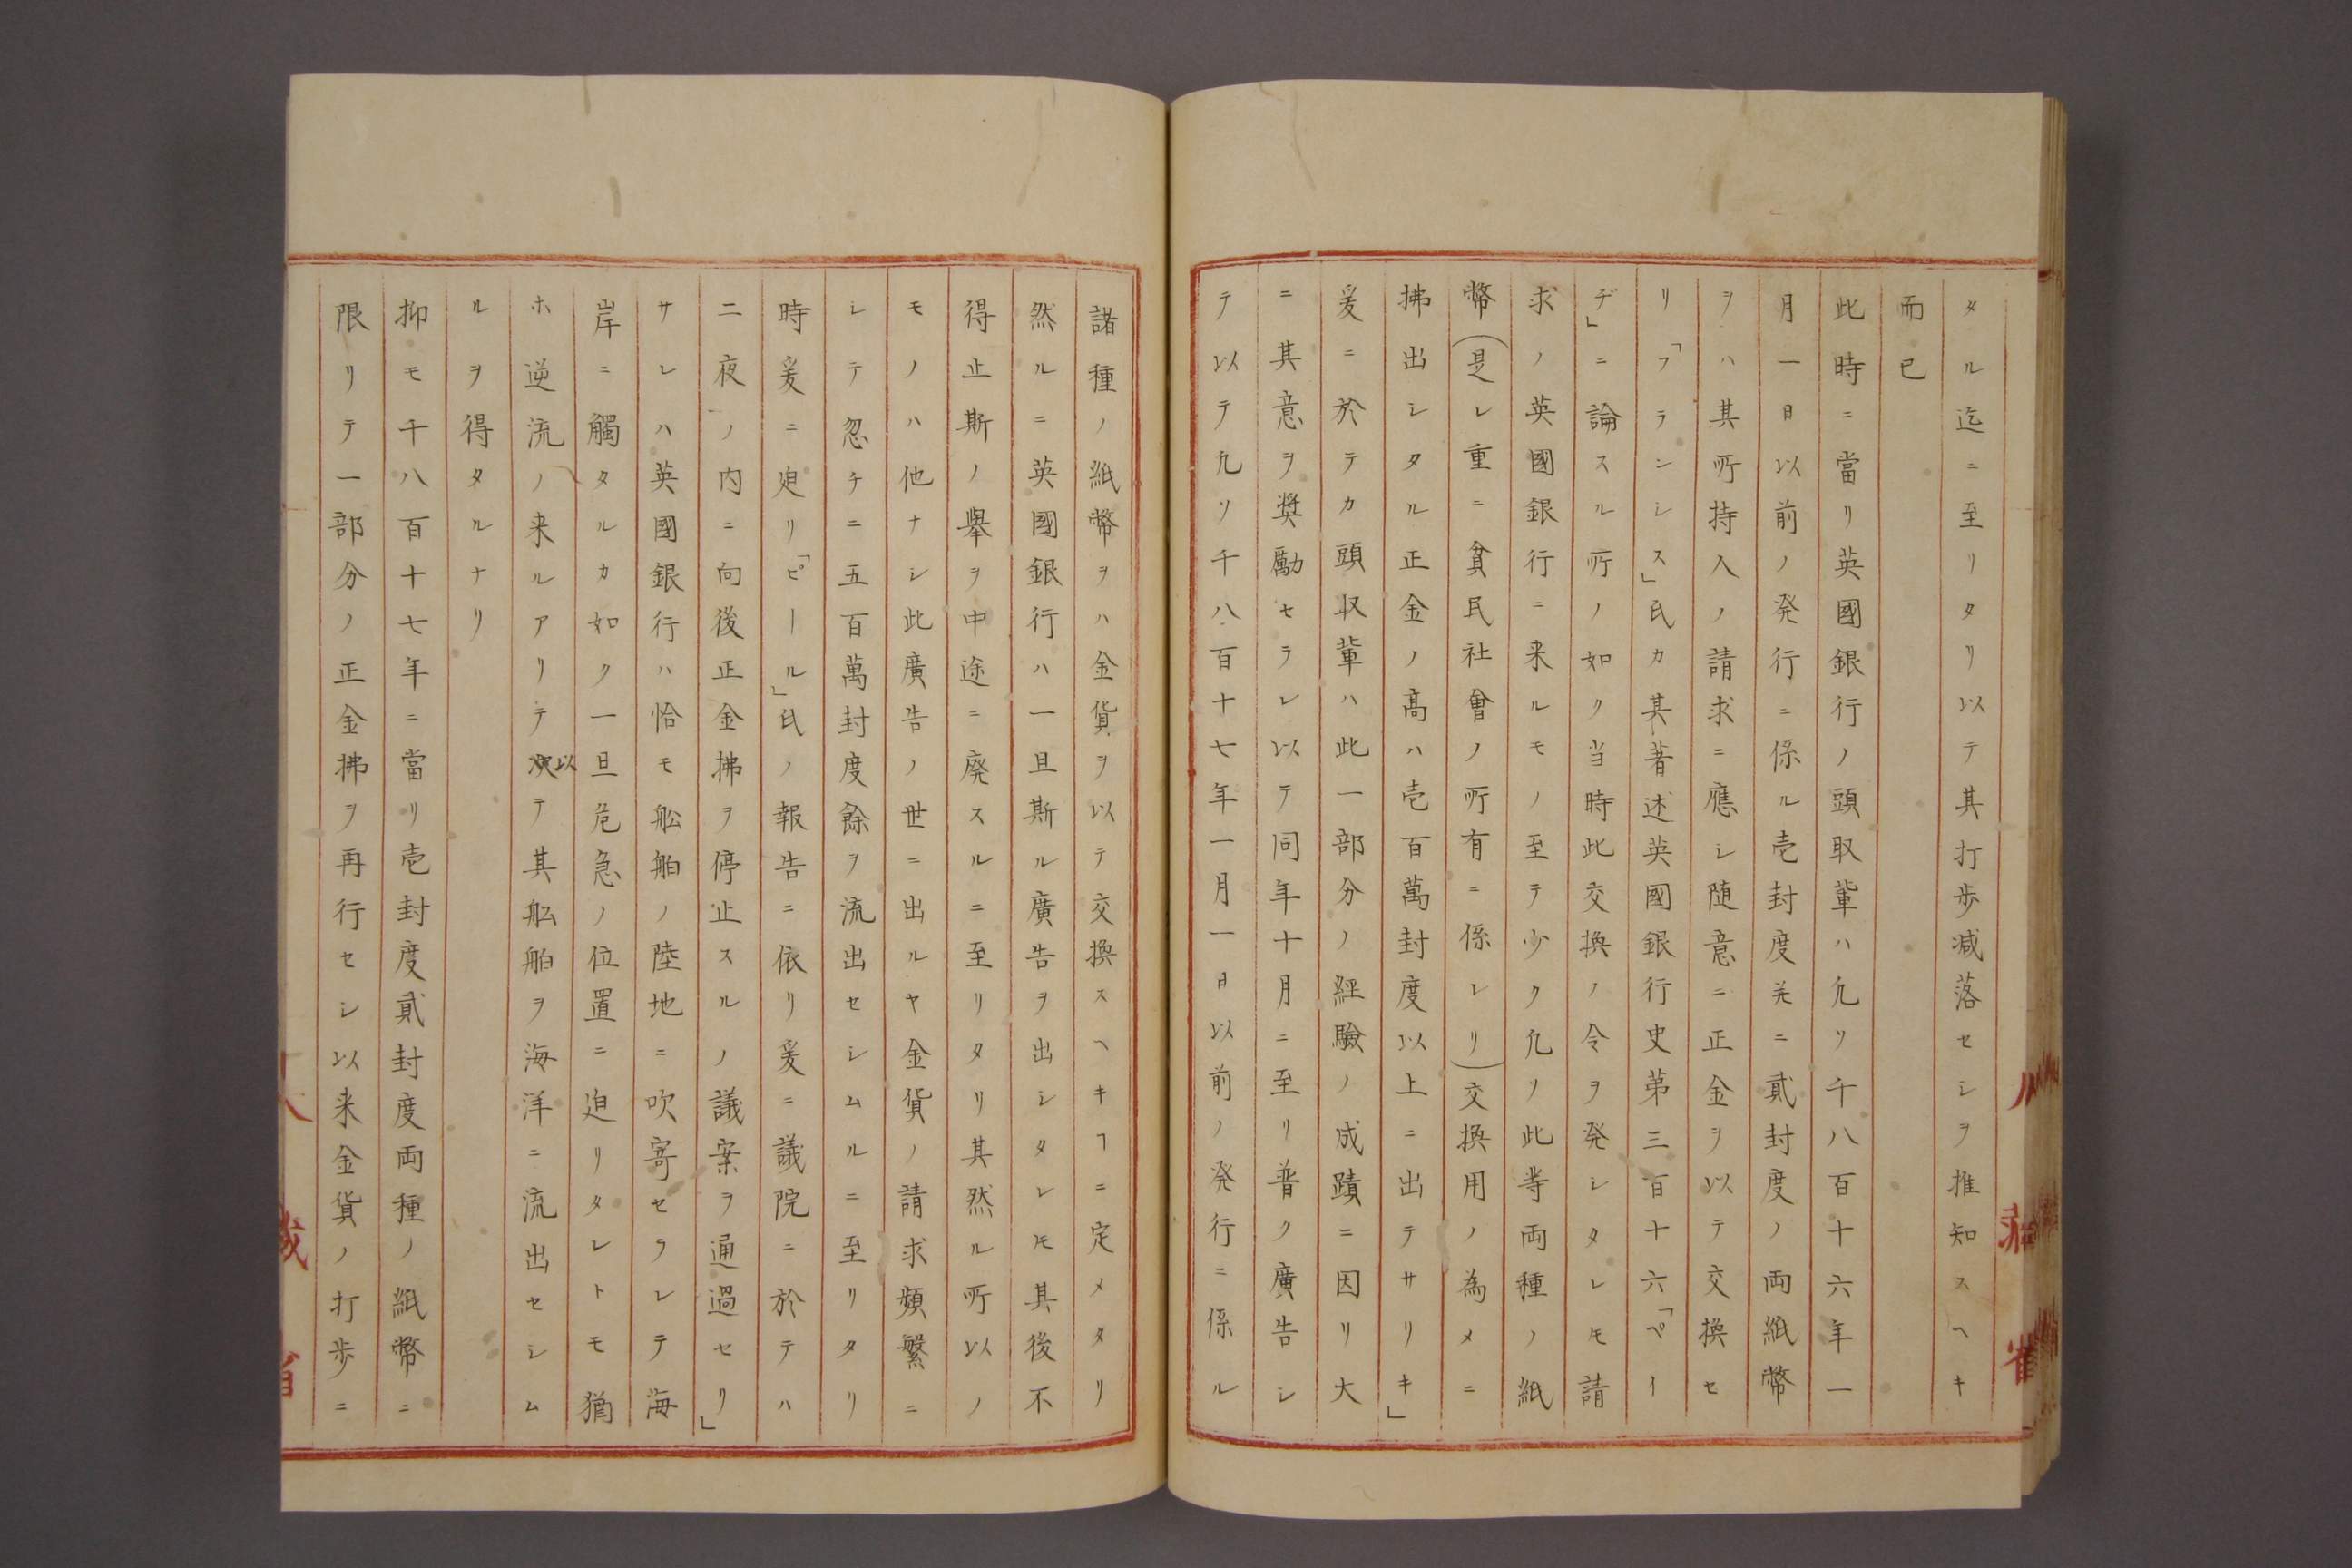 タル迄ニ至リタリ以テ其打歩减落セシヲ推知スヘキ
而已
此時ニ當リ英國銀行ノ頭取輩ハ凢ソ千八百十六年一
月一日以前ノ発行ニ係ル壱封度並ニ貳封度ノ両紙幣
ヲハ其所持人ノ請求ニ應シ随意ニ正金ヲ以テ交換セ
リ「フランシス」氏カ其著述英國銀行史第三百十六「ペイ
ヂ」ニ論スル所ノ如ク当時此交換ノ令ヲ発シタレ𪜈請
求ノ英國銀行ニ来ルモノ至テ少ク凢ソ此等両種ノ紙
幣(是レ重ニ貧民社會ノ所有ニ係レリ)交換用ノ為メニ
拂出シタル正金ノ髙ハ壱百萬封度以上ニ出テサリキ」
爰ニ於テカ頭取輩ハ此一部分ノ経驗ノ成蹟ニ因リ大
ニ其意ヲ奨勵セラレ以テ同年十月ニ至リ普ク廣告シ
テ以テ凢ソ千八百十七年一月一日以前ノ発行ニ係ル
諸種ノ紙幣ヲハ金貨ヲ以テ交換スヘキヿニ定メタリ
然ルニ英國銀行ハ一旦斯ル廣告ヲ出シタレ𪜈其後不
得止斯ノ舉ヲ中途ニ廃スルニ至リタリ其然ル所以ノ
モノハ他ナシ此廣告ノ世ニ出ルヤ金貨ノ請求頻繁ニ
シテ忽チニ五百萬封度餘ヲ流出セシムルニ至リタリ
時爰ニ迨リ「ピール」氏ノ報告ニ依リ爰ニ議院ニ於テハ
二夜ノ内ニ向後正金拂ヲ停止スルノ議案ヲ通過セリ」
サレハ英國銀行ハ恰モ舩舶ノ陸地ニ吹寄セラレテ海
岸ニ觸タルカ如ク一旦危急ノ位置ニ迫リタレトモ猶
ホ逆流ノ来ルアリテ以テ其舩舶ヲ海洋ニ流出セシム
ルヲ得タルナリ
抑モ千八百十七年ニ當リ壱封度貳封度両種ノ紙幣ニ
限リテ一部分ノ正金拂ヲ再行セシ以来金貨ノ打歩ニ